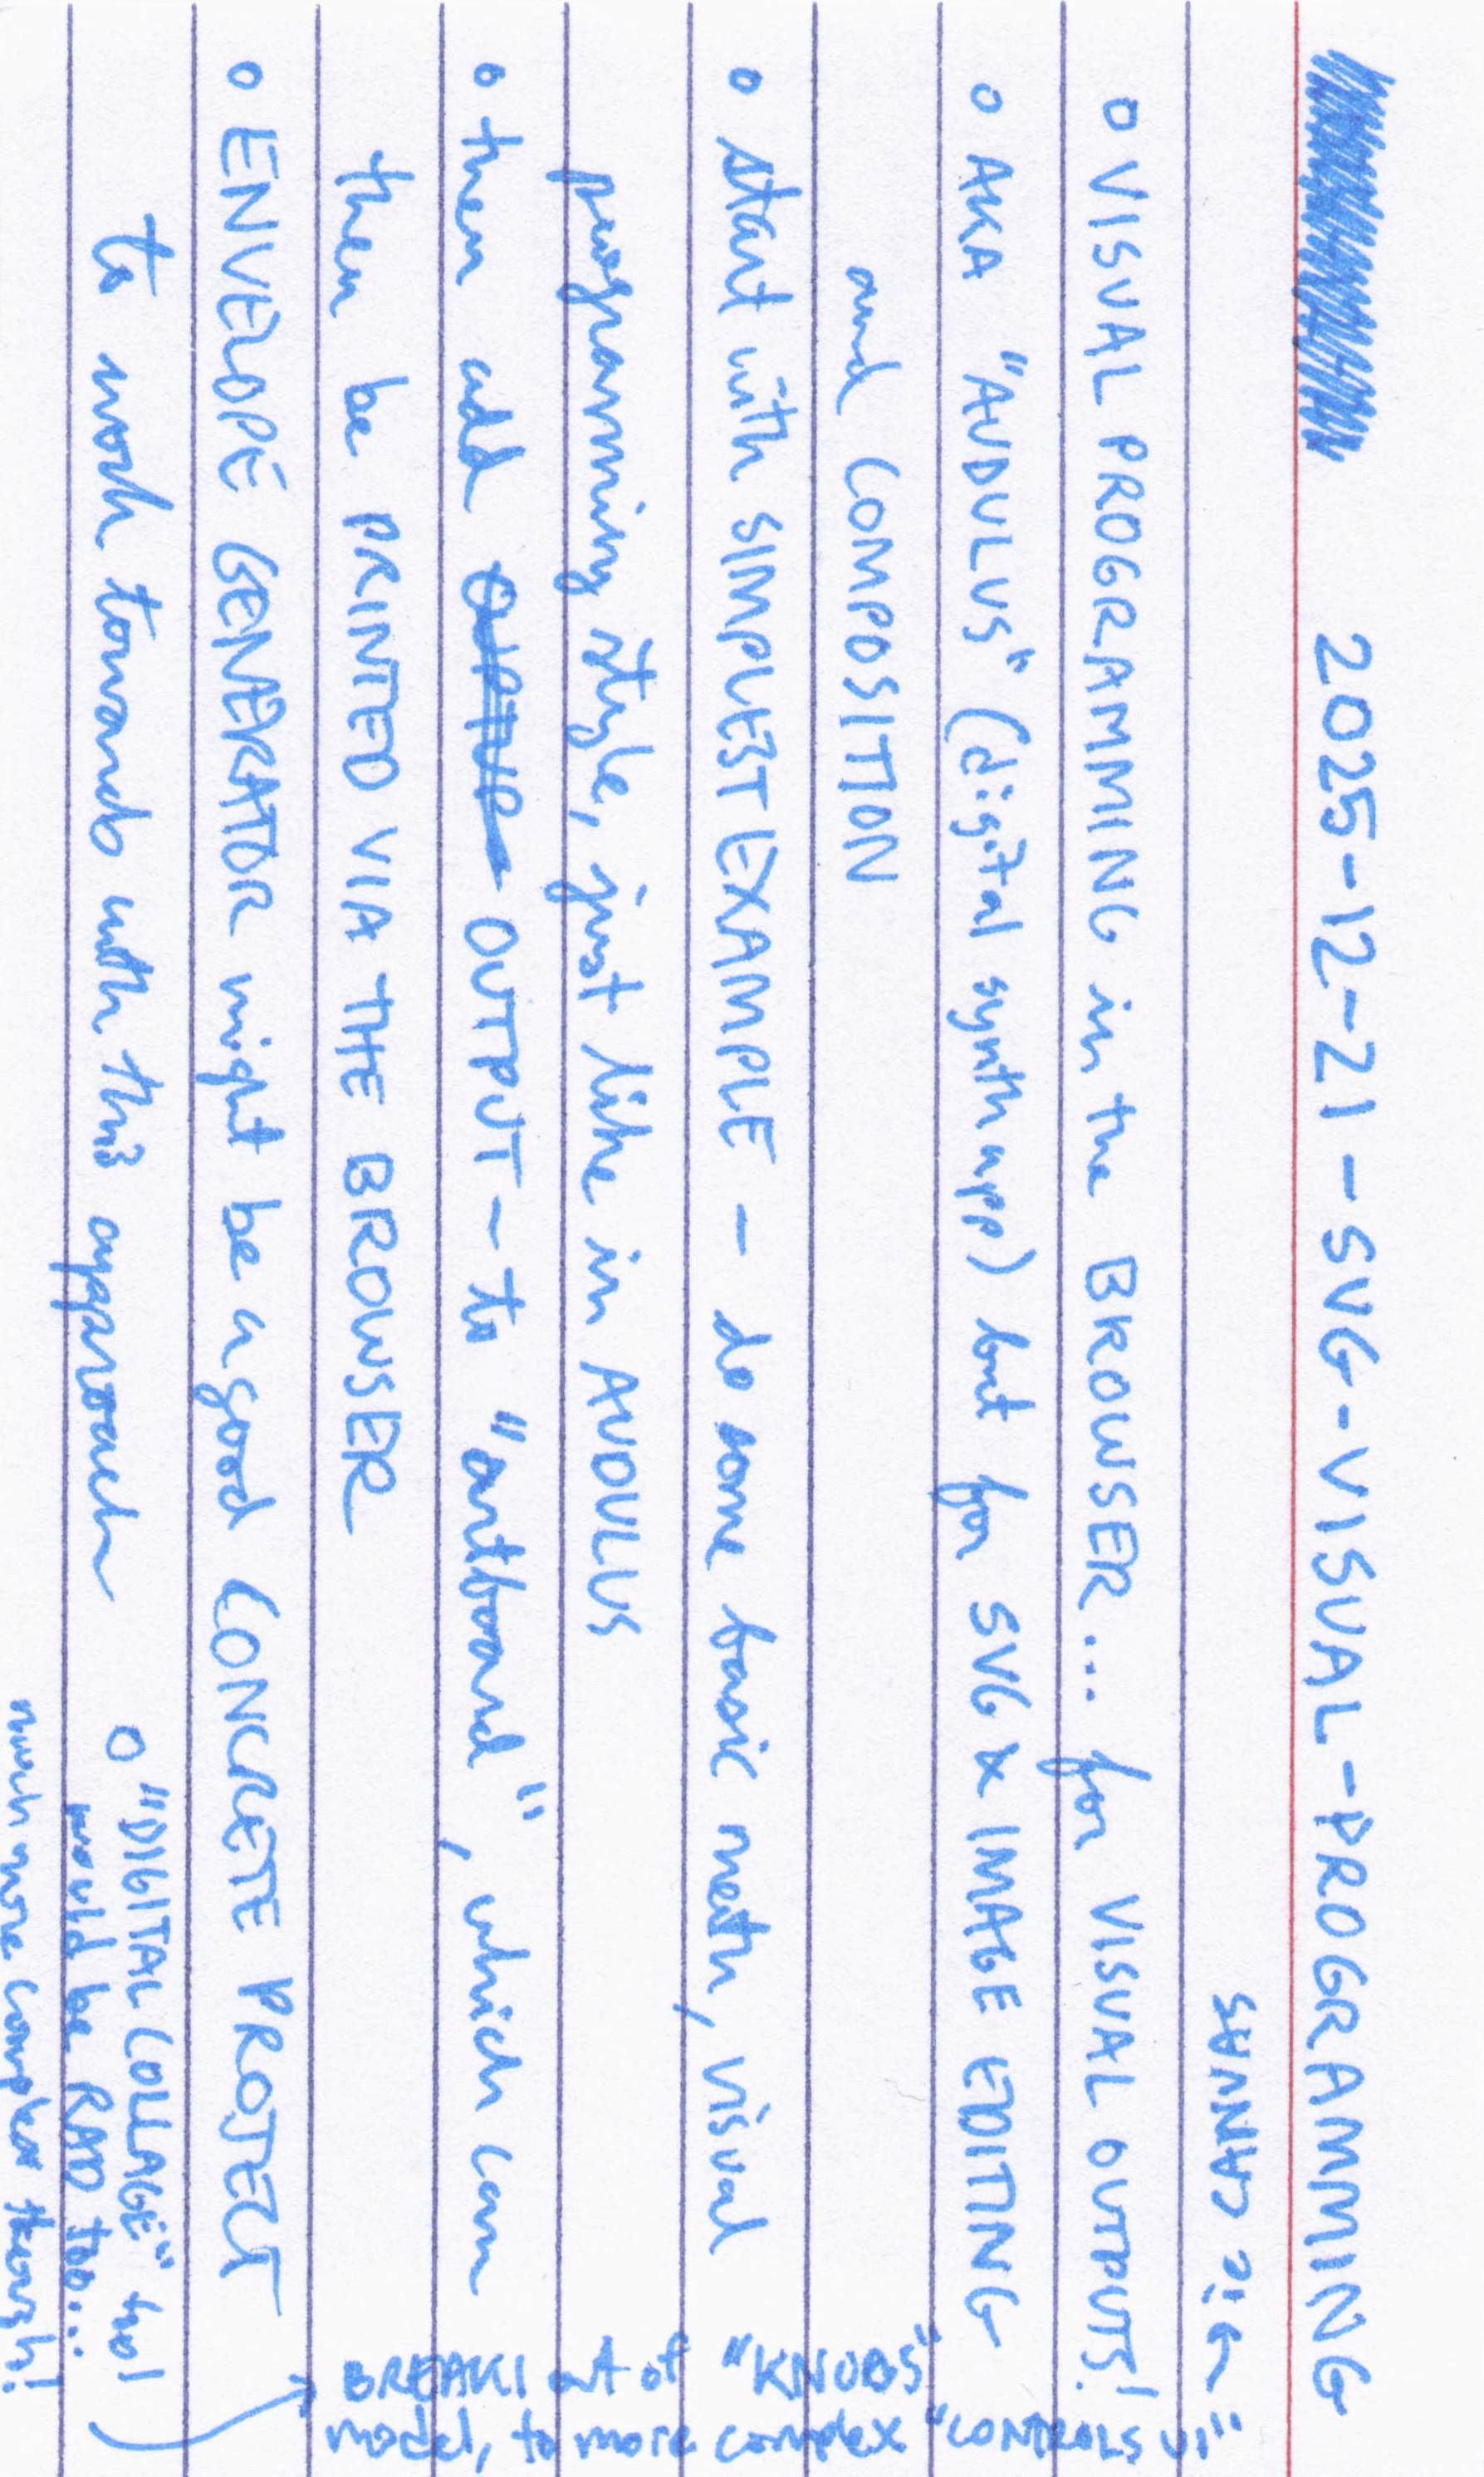 2025-12-21-SVG-VISUAL-PROGRAMMING
CANVAS?
o VISUAL PROGRAMMING in the BROWSER... for VISUAL OUTPUTS!
o AKA "AUDULUS" (digital synth app) but for SVG & IMAGE EDITING
and COMPOSITION
o start with SIMPLEST EXAMPLE - do some basic math, visual
programming style, just like in AUDULUS
o then add OUTPUT - to "artboard", which can
then be PRINTED VIA THE BROWSER
o ENVELOPE GENERATOR might be a good CONCRETE PROJECT
to work towards with this approach
o "DIGITAL COLLAGE" tool
would be RAD too...
much more complex though!
BREAKS out of "KNOBS"
model, to more complex "CONTROLS UI"